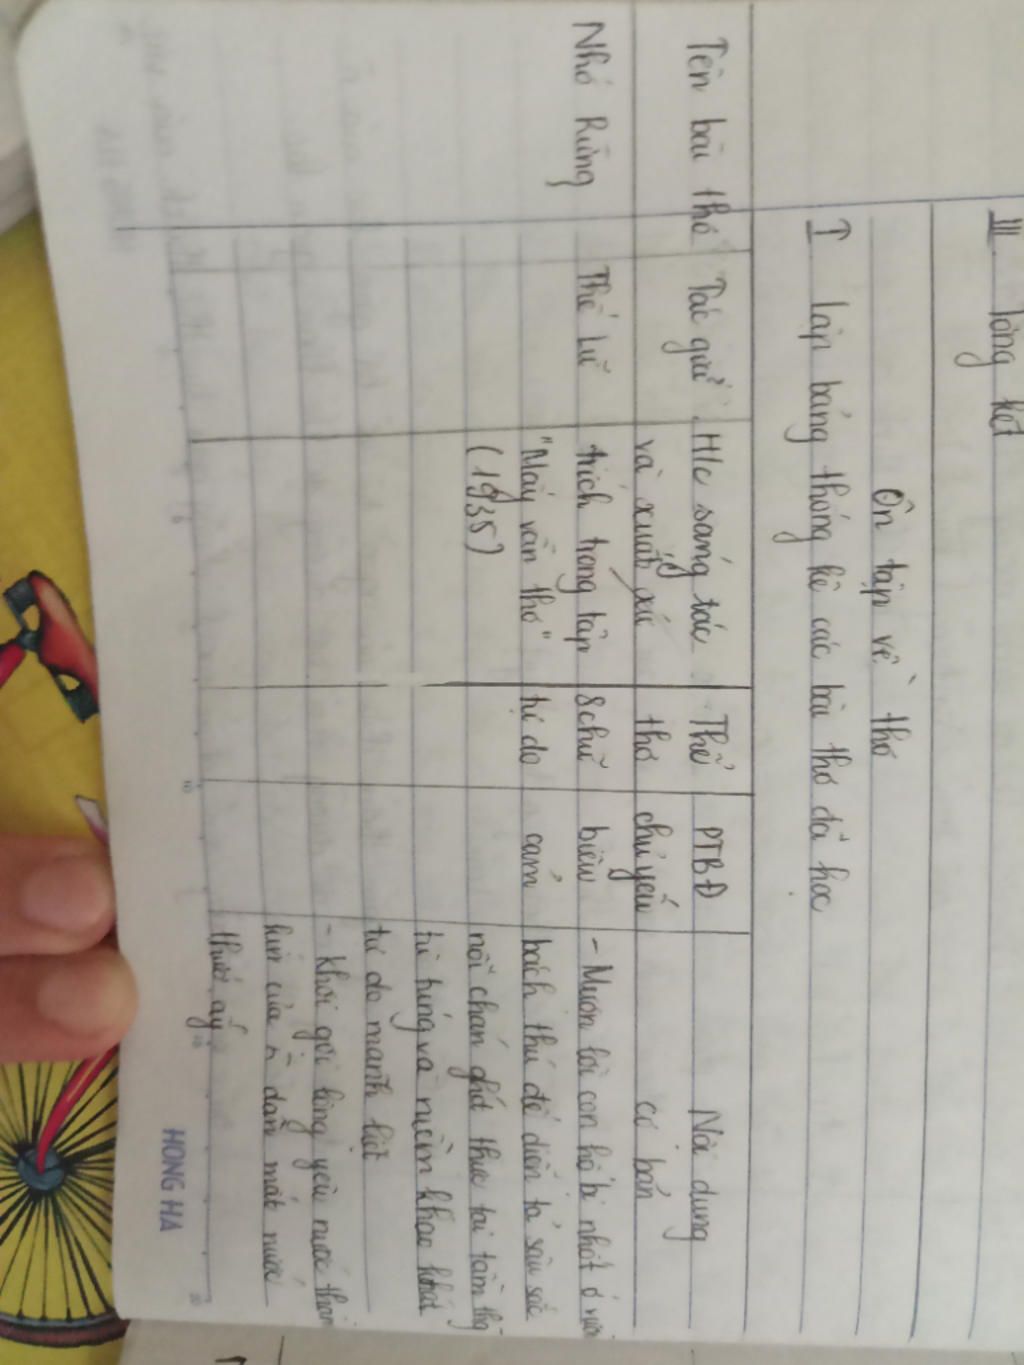 III. Tổng kết
Ôn tập về thơ
I lập bảng thống kê các bài thơ đã học
Tên bài thơ Tác giả H/c sáng tác Thể PTBĐ Nội dung
và xuất xứ thơ chủ yếu cơ bản
Nhớ Rừng Thế Lữ trích trong tập 8 chữ biểu - Mượn lời con hổ bị nhốt ở vườn
"Mấy vần thơ" tự do cảm bách thú để diễn tả sâu sắc
(1935) nỗi chán ghét thực tại tầm thg
tù túng và niềm khao khát
tự do mãnh liệt
- khơi gợi lòng yêu nước thầm
kín của n dân mất nước
thuở ấy
HONG HA